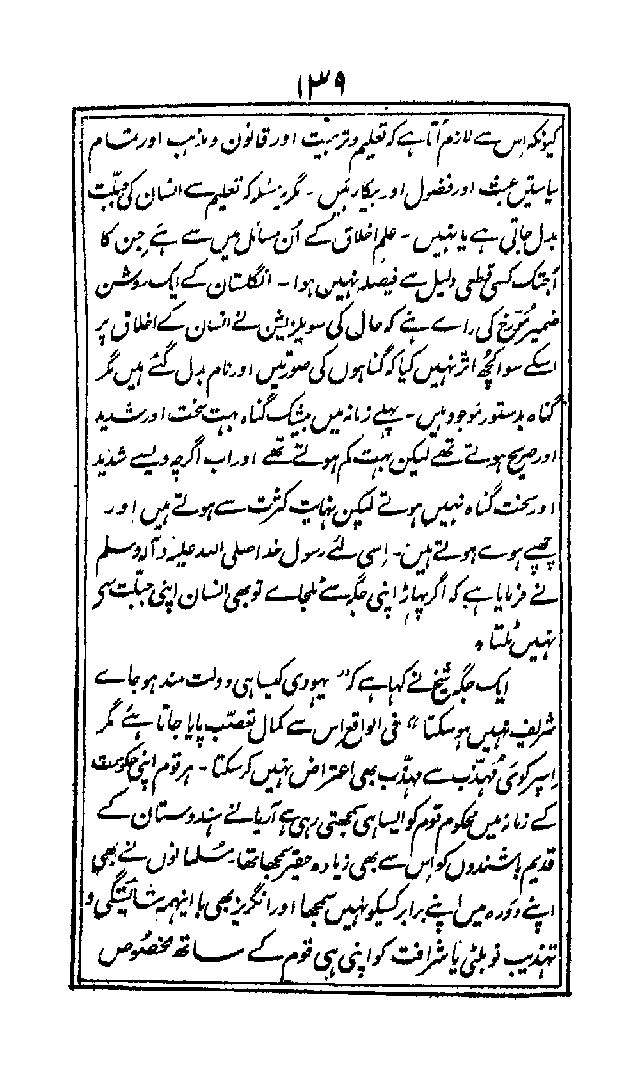 ۱۳۹
کیونکہ اس سے لازم آتا ہے کہ تعلیم و تربیت اور قانون و مذہب اور تمام
سیاستیں عبث اور فضول اور بیکار ہیں - مگر یہ مسئلہ کہ تعلیم سے انسان کی جبلت
بدل جاتی ہے یا نہیں - علم اخلاق کے اُن مسائل میں سے ہے جن کا
آجتک کسی قطعی دلیل سے فیصلہ نہیں ہوا - انگلستان کے ایک روشن
ضمیر مُورّخ کی راے ہے کہ حال کی سویلزیشن نے انسان کے اخلاق پر
اسکے سوا کچھ اثر نہیں کیا کہ گناہوں کی صورتیں اور نام بدل گئے ہیں مگر
گناہ بدستور موجود ہیں - پہلے زمانہ میں بیشک گناہ بہت سخت اور شدید
اور صریح ہوتے تھے لیکن بہت کم ہوتے تھے اور اب اگرچہ ویسے شدید
اور سخت گناہ نہیں ہوتے لیکن نہایت کثرت سے ہوتے ہیں اور
چھپے ہوے ہوتے ہیں - اِسی لئے رسول خدا صلی اللہ علیہ و آلہ وسلم
نے فرمایا ہے کہ اگر پہاڑ اپنی جگہ سے ٹلجاے تو بھی انسان اپنی جبلت سی
نہیں ٹلتا ۰
ایک جگہ شیخ نے کہا ہے کہ " یہودی کیسا ہی دولت مند ہو جاے
شریف نہیں ہو سکتا " فی الواقع اس سے کمال تعصّب پایا جاتا ہے مگر
اِسپر کوئی مُہذّب سے مہذّب بھی اعتراض نہیں کر سکتا - ہر قوم اپنی حکومت
کے زمانہ میں محکوم قوم کو ایسا ہی سمجھتی رہی ہے آریا نے ہندوستان کے
قدیم باشندوں کو اس سے بھی زیادہ حقیر سمجھا تھا - مسلمانوں نے بھی
اپنے دَورہ میں اپنے برابر کسیکو نہیں سمجھا اور انگریز بھی با اینہمہ شائستگی و
تہذیب نوبلٹی یا شرافت کو اپنی ہی قوم کے ساتھ مخصوص